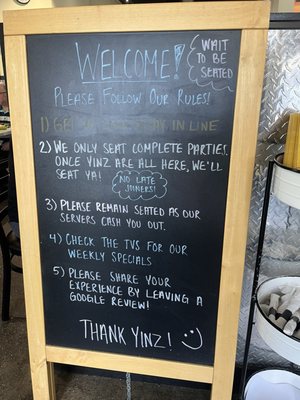 WELCOME!
WAIT
TO BE
SEATED
PLEASE FOLLOW OUR RULES!
1) GET IN LINE
2) WE ONLY SEAT COMPLETE PARTIES.
ONCE YINZ ARE ALL HERE, WE'LL
SEAT YA!
NO LATE
JOINERS!
3) PLEASE REMAIN SEATED AS OUR
SERVERS CASH YOU OUT.
4) CHECK THE TVS FOR OUR
WEEKLY SPECIALS
5) PLEASE SHARE YOUR
EXPERIENCE BY LEAVING A
GOOGLE REVIEW!
THANK YINZ! :)